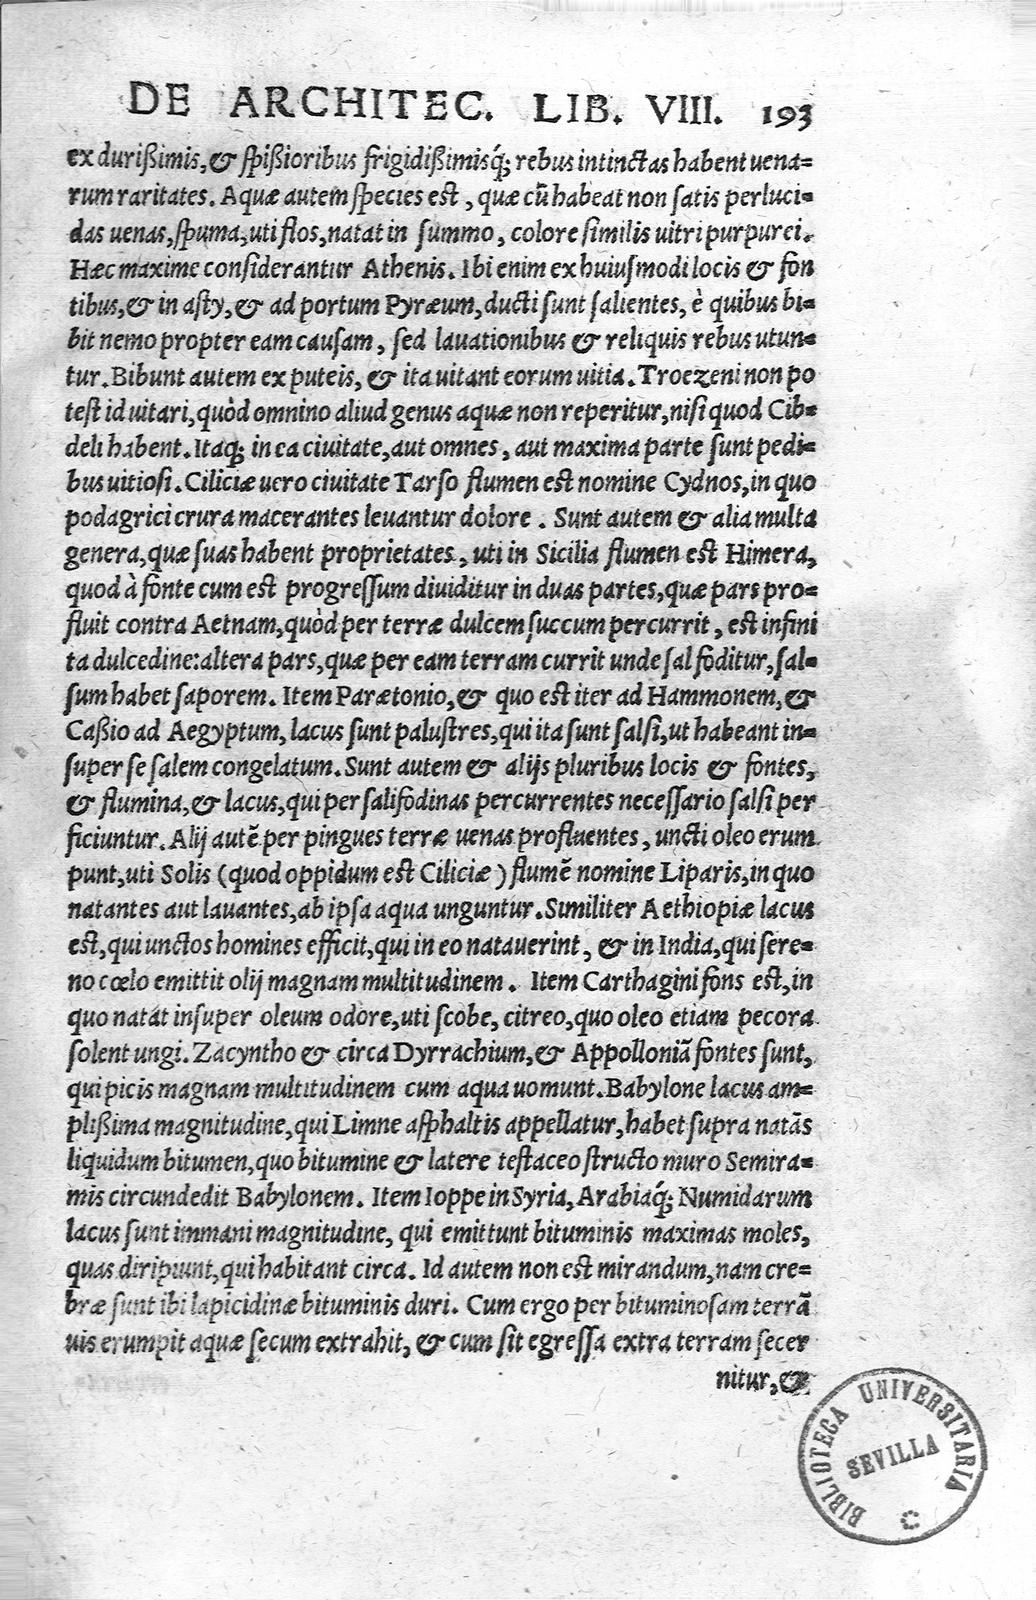 DE ARCHITEC. LIB. VIII. 193
ex durißimis, & ſpißioribus frigidißimisq́; rebus intinctas habent uena=
rum raritates. Aquæ autem ſpecies est, quæ cū habeat non ſatis perluci=
das uenas, ſpuma, uti flos, natat in ſummo, colore ſimilis uitri purpurei.
Hæc maxime conſiderantur Athenis. Ibi enim ex huiuſmodi locis & fon
tibus, & in aſty, & ad portum Pyræum, ducti ſunt ſalientes, è quibus bi=
bit nemo propter eam cauſam, ſed lauationibus & reliquis rebus utun=
tur. Bibunt autem ex puteis, & ita uitant eorum uitia. Troezeni non po
test id uitari, quòd omnino aliud genus aquæ non reperitur, niſi quod Cib=
deli habent. Itaq; in ea ciuitate, aut omnes, aut maxima parte ſunt pedi=
bus uitioſi. Ciliciæ uero ciuitate Tarſo flumen est nomine Cydnos, in quo
podagrici crura macerantes leuantur dolore. Sunt autem & alia multa
genera, quæ ſuas habent proprietates, uti in Sicilia flumen est Himera,
quod à fonte cum est progreſſum diuiditur in duas partes, quæ pars pro=
fluit contra Aetnam, quòd per terræ dulcem ſuccum percurrit, est infini
ta dulcedine: altera pars, quæ per eam terram currit unde ſal foditur, ſal=
ſum habet ſaporem. Item Parætonio, & quo est iter ad Hammonem, &
Caßio ad Aegyptum, lacus ſunt paluſtres, qui ita ſunt ſalſi, ut habeant in=
ſuper ſe ſalem congelatum. Sunt autem & alijs pluribus locis & fontes,
& flumina, & lacus, qui per ſalifodinas percurrentes neceſſario ſalſi per
ficiuntur. Alij autē per pingues terræ uenas profluentes, uncti oleo erum
punt, uti Solis (quod oppidum est Ciliciæ) flumē nomine Liparis, in quo
natantes aut lauantes, ab ipſa aqua unguntur. Similiter Aethiopiæ lacus
est, qui unctos homines efficit, qui in eo natauerint, & in India, qui ſere=
no cœlo emittit olij magnam multitudinem. Item Carthagini fons est, in
quo natat inſuper oleum odore, uti ſcobe, citreo, quo oleo etiam pecora
ſolent ungi. Zacyntho & circa Dyrrachium, & Appolloniā fontes ſunt,
qui picis magnam multitudinem cum aqua uomunt. Babylone lacus am=
plißima magnitudine, qui Limne aſphaltis appellatur, habet ſupra natās
liquidum bitumen, quo bitumine & latere teſtaceo ſtructo muro Semira=
mis circundedit Babylonem. Item Ioppe in Syria, Arabiaq́; Numidarum
lacus ſunt immani magnitudine, qui emittunt bituminis maximas moles,
quas diripiunt, qui habitant circa. Id autem non est mirandum, nam cre=
bræ ſunt ibi lapicidinæ bituminis duri. Cum ergo per bituminoſam terrā
uis erumpit aquæ ſecum extrahit, & cum ſit egreſſa extra terram ſecer
nitur, &
BIBLIOTECA UNIVERSITARIA
SEVILLA